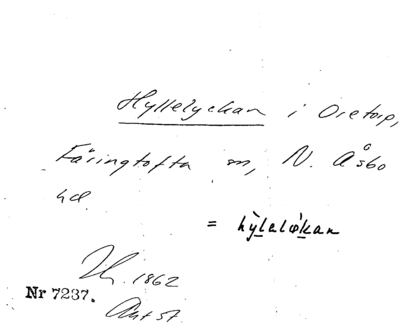 Hyllelyckan i Oretorp,
Färingtofta sn, N. Åsbo
hd.
= hỳlalökan
1862
Nr 7237.